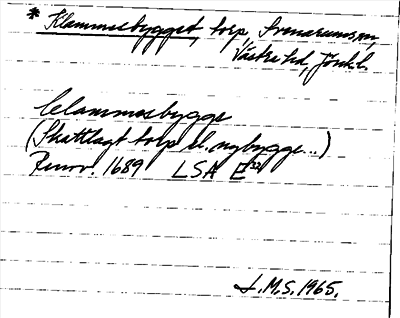 * Klammesbygget, torp, Svenarums sn,
Västra hd, Jönk. l.
Clammesbygge
(Skattlagt torp el. nybygge...)
Renov. 1689 LSA E 32
L.M.S. 1965.